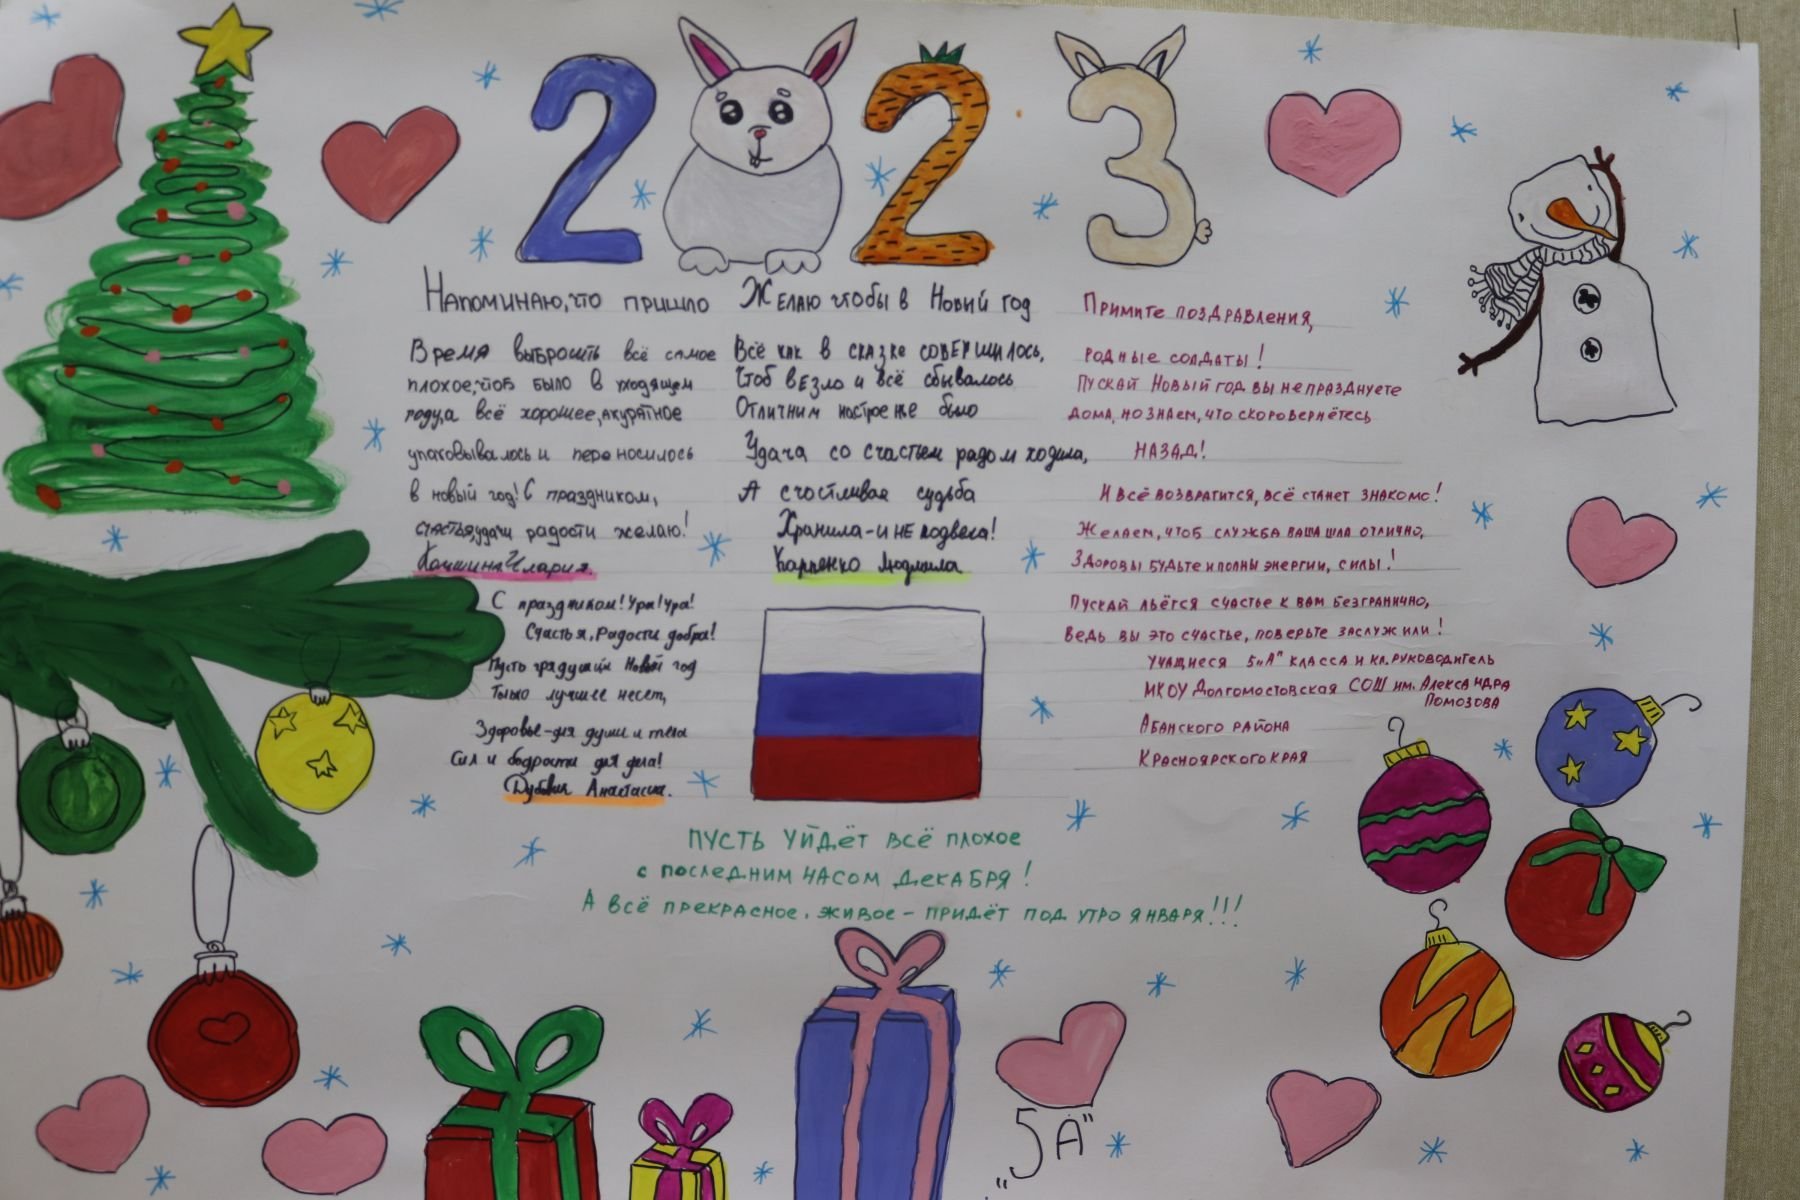 2023
Напоминаю, что пришло
Время выбросить всё самое
плохое, что было в уходящем
году, а всё хорошее, акуратное
упаковывалось и переносилось
в новый год! С праздником,
счастья, удачи радости желаю!
Илария.
С праздником! Ура! Ура!
Счастья, Радости добра!
Пусть грядущий Новый год
Только лучшее несет,
Здоровье-для души и тела
Сил и бодрости для дела!
Анастасия.
Желаю чтобы в Новый год
Всё как в сказке совершилось,
Чтоб везло и всё сбывалось
Отличним настроение было
Удача со счастьем рядом ходила,
А счостливая судьба
Хранила-и не подвела!
Карпенко Людмила
Примите поздравления,
родные солдаты!
Пускай Новый год вы не празднуете
дома, но знаем, что скоро вернётесь
назад!
И всё возвратится, всё станет знакомо!
Желаем, чтоб служба ваша шла отлично,
Здоровы будьте и полны энергии, силы!
Пускай льётся счастье к вам безгранично,
Ведь вы это счастье, поверьте заслужили!
учащиеся 5 „А" класса и кл. руководитель
МКОУ Долгомостовская СОШ им. Александра
Помозова
Абанского района
Красноярского края
Пусть уйдёт всё плохое
с последним часом декабря!
А всё прекрасное, живое - придёт под утро января!!!
„5А"